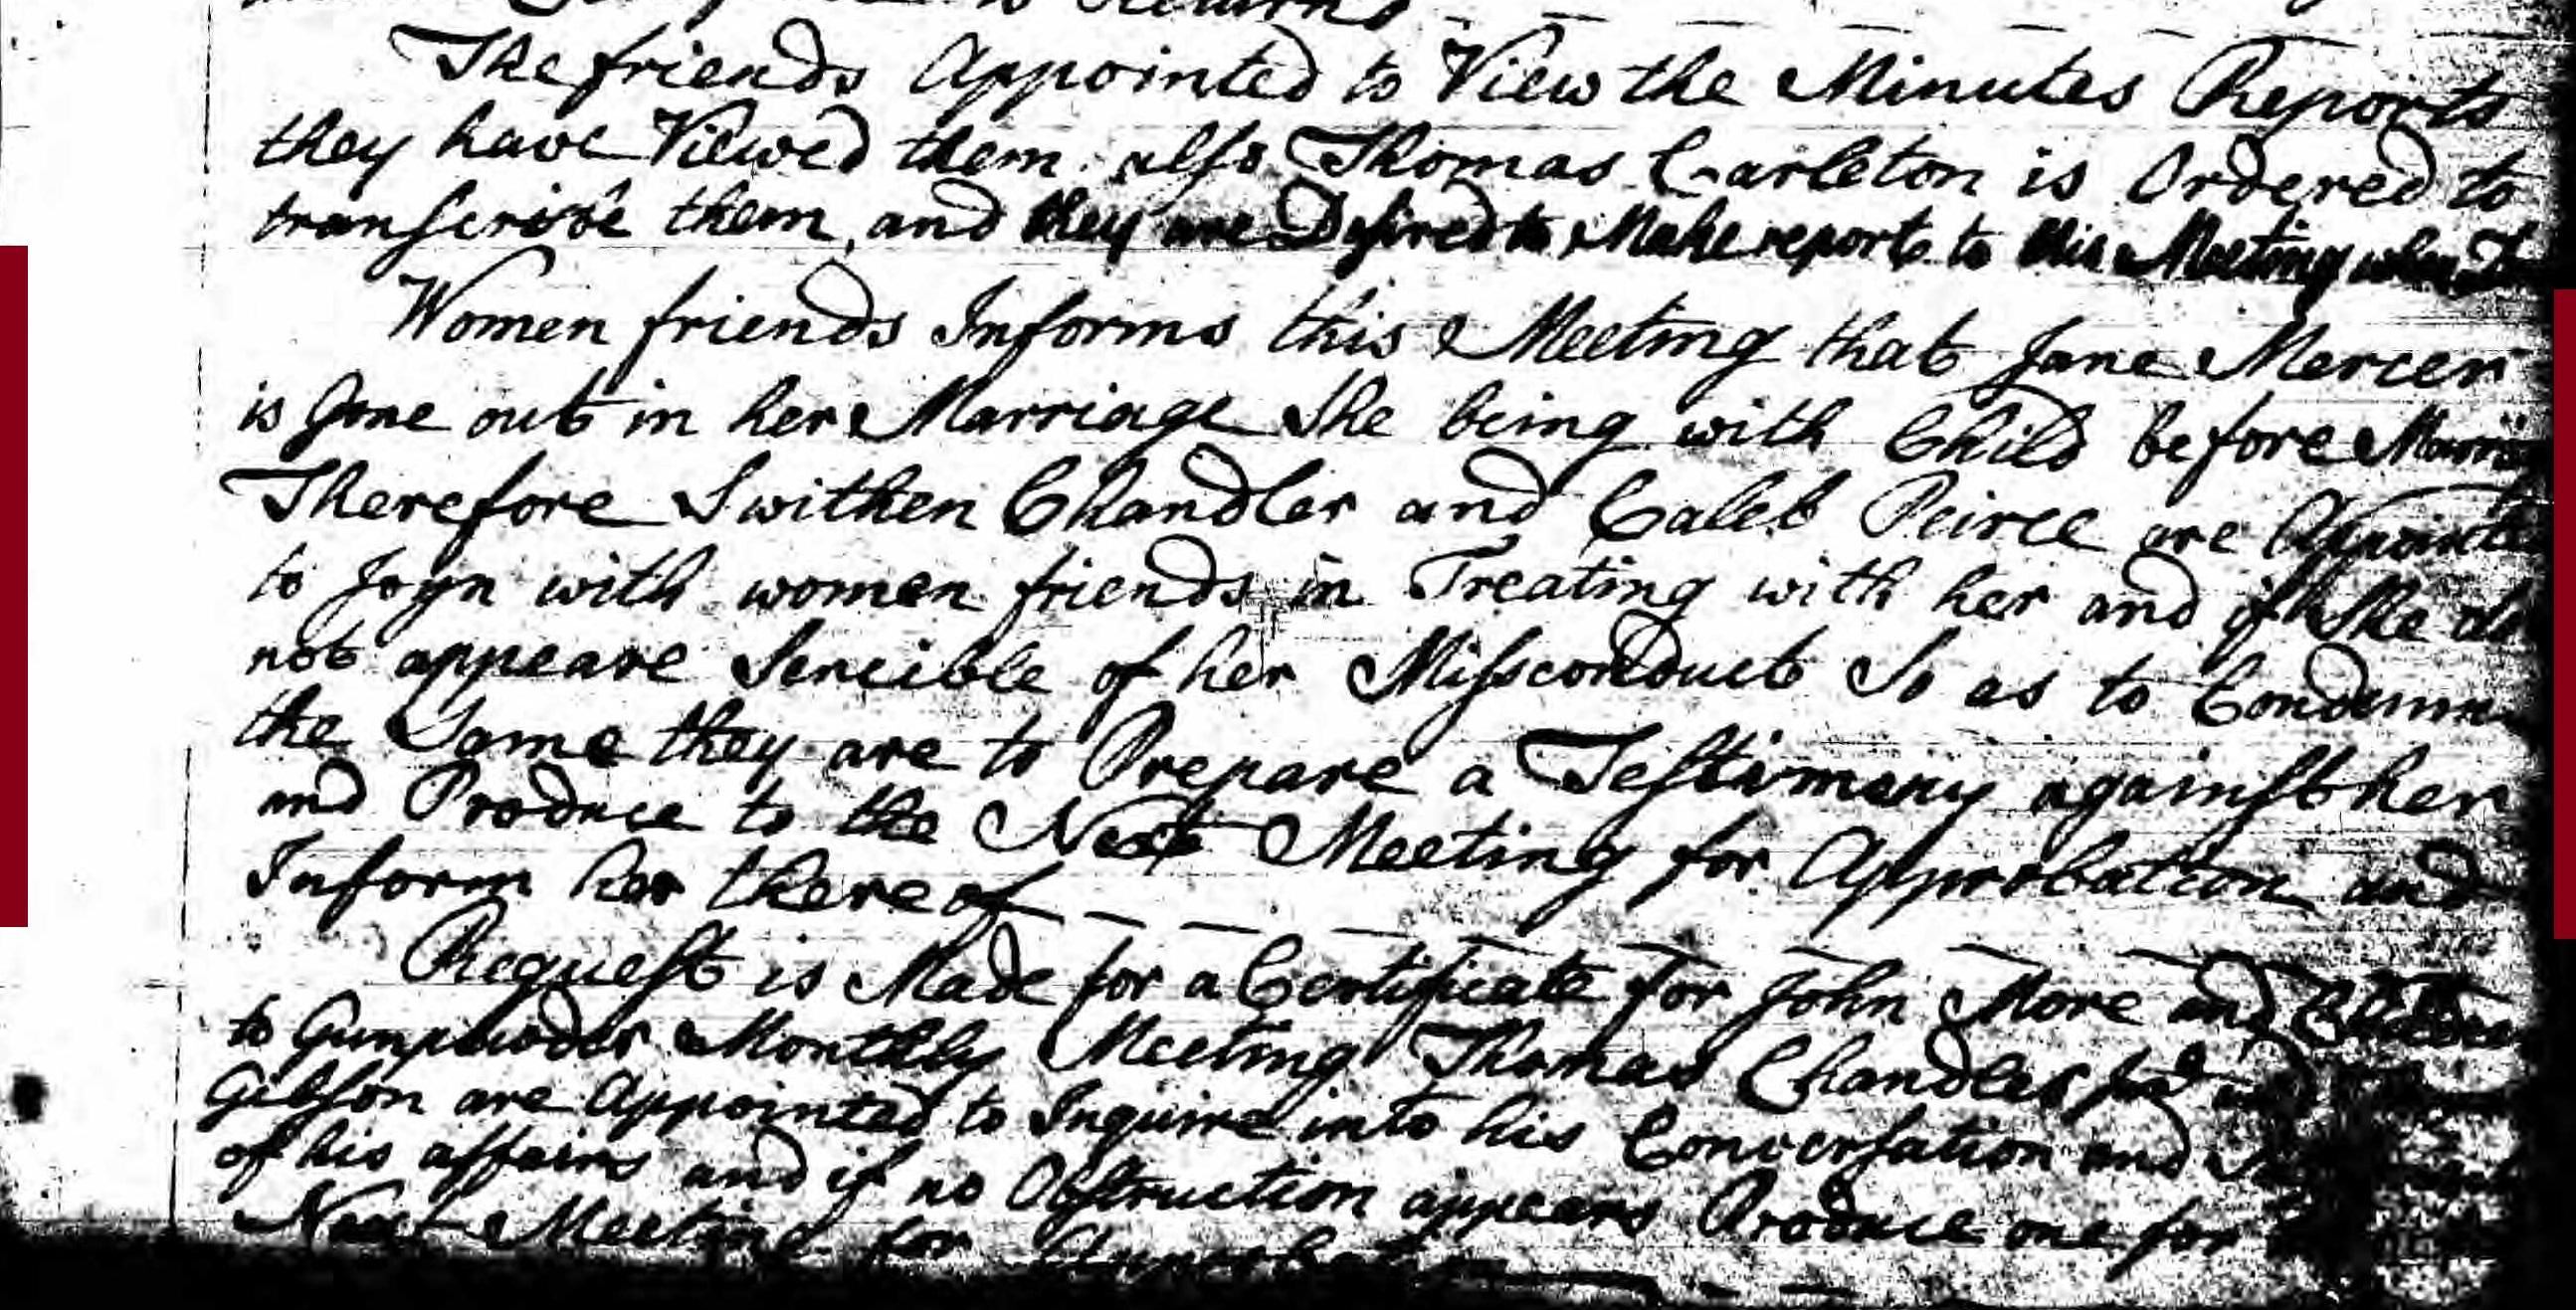 to Returns
The friends Appointed to View the Minutes Reports
they have Viewed them also Thomas Carleton is Ordered to
transcribe them, and they are Desired to Make report to this Meeting when
Women friends Informs this Meeting that Jane Mercer
is Gone out in her Marriage She being with Child before
Therefore Swithen Chandler and Caleb Peirce are
to Joyn with women friends in Treating with her and if She
not appeare Sencible of her Missconduct So as to
the Same they are to Prepare a Testimony against her
and Produce to the Next Meeting for Approbation and
Inform her thereof
Request is Made for a Certificate for John More and
to Gunpowder Monthly Meeting Thomas Chandler
Gibson are Appointed to Inquire into his Conversation and
of his affairs and if no Obstruction appears Produce one for
Next Meeting for